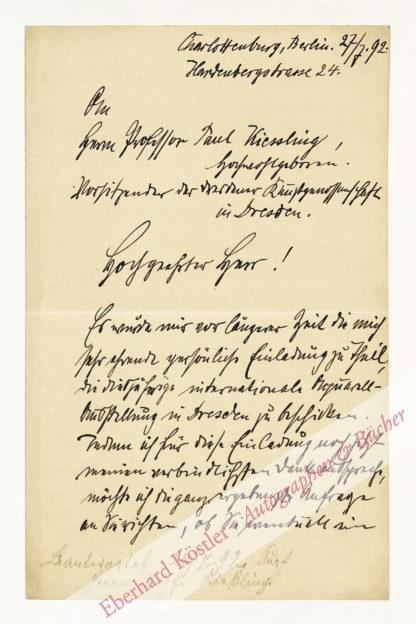 Charlottenburg, Berlin. 27/7.92.
Hardenbergstrasse 24.
An
Herrn Professor Paul Kiessling,
Hochwohlgeboren.
Vorsitzender der Dresdener Kunstgenossenschaft
in Dresden.
Hochgeehrter Herr!
Es wurde mir vor längerer Zeit die mich
sehr ehrende persönliche Einladung zu Theil,
die diesjährige internationale Aquarell-
Ausstellung in Dresden zu beschicken.
Indem ich für diese Einladung noch
meinen verbindlichsten Dank ausspreche,
möchte ich die ganz ergebenste Anfrage
an Sie richten, ob Sie eventuell ein
Beantwortet 92 durch
Herrn Prof. Kießling.
Eberhard Köstler - Autographen & Bücher